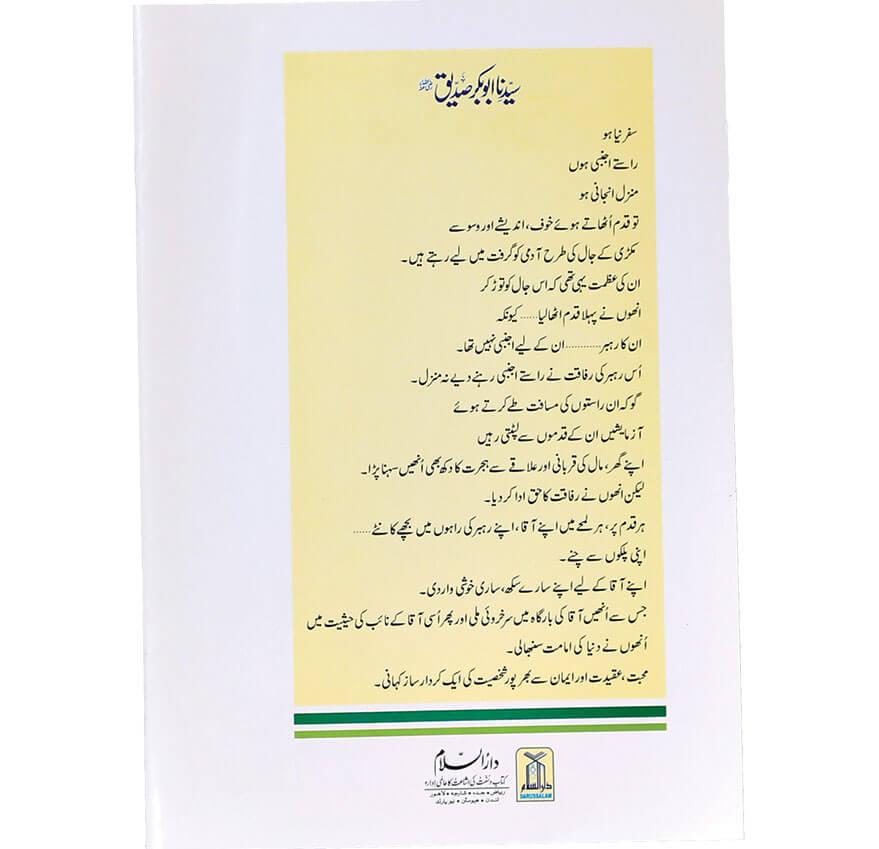 سیّدنا ابوبکر صدّیق رضی اللہ عنہ
سفر نیا ہو
راستے اجنبی ہوں
منزل انجانی ہو
تو قدم اُٹھاتے ہوئے خوف، اندیشے اور وسوسے
مکڑی کے جال کی طرح آدمی کو گرفت میں لیے رہتے ہیں۔
ان کی عظمت یہی تھی کہ اس جال کو توڑ کر
انھوں نے پہلا قدم اٹھالیا...... کیونکہ
ان کا رہبر............ان کے لیے اجنبی نہیں تھا۔
اُس رہبر کی رفاقت نے راستے اجنبی رہنے دیے نہ منزل۔
گو کہ ان راستوں کی مسافت طے کرتے ہوئے
آزمایشیں ان کے قدموں سے لپٹتی رہیں
اپنے گھر، مال کی قربانی اور علاقے سے ہجرت کا دکھ بھی اُنھیں سہنا پڑا۔
لیکن انھوں نے رفاقت کا حق ادا کر دیا۔
ہر قدم پر، ہر لمحے میں اپنے آقا، اپنے رہبر کی راہوں میں بچھے کانٹے......
اپنی پلکوں سے چنے۔
اپنے آقا کے لیے اپنے سارے سکھ، ساری خوشی وار دی۔
جس سے اُنھیں آقا کی بارگاہ میں سرخروئی ملی اور پھر اُسی آقا کے نائب کی حیثیت میں
اُنھوں نے دنیا کی امامت سنبھالی۔
محبت، عقیدت اور ایمان سے بھرپور شخصیت کی ایک کردار ساز کہانی۔
دارُالسلام
کتاب و سُنّت کی اشاعت کا عالمی ادارہ
ریاض • جدہ • شارجہ • لاہور
لندن • ہیوسٹن • نیویارک
دارالسلام
DARUSSALAM